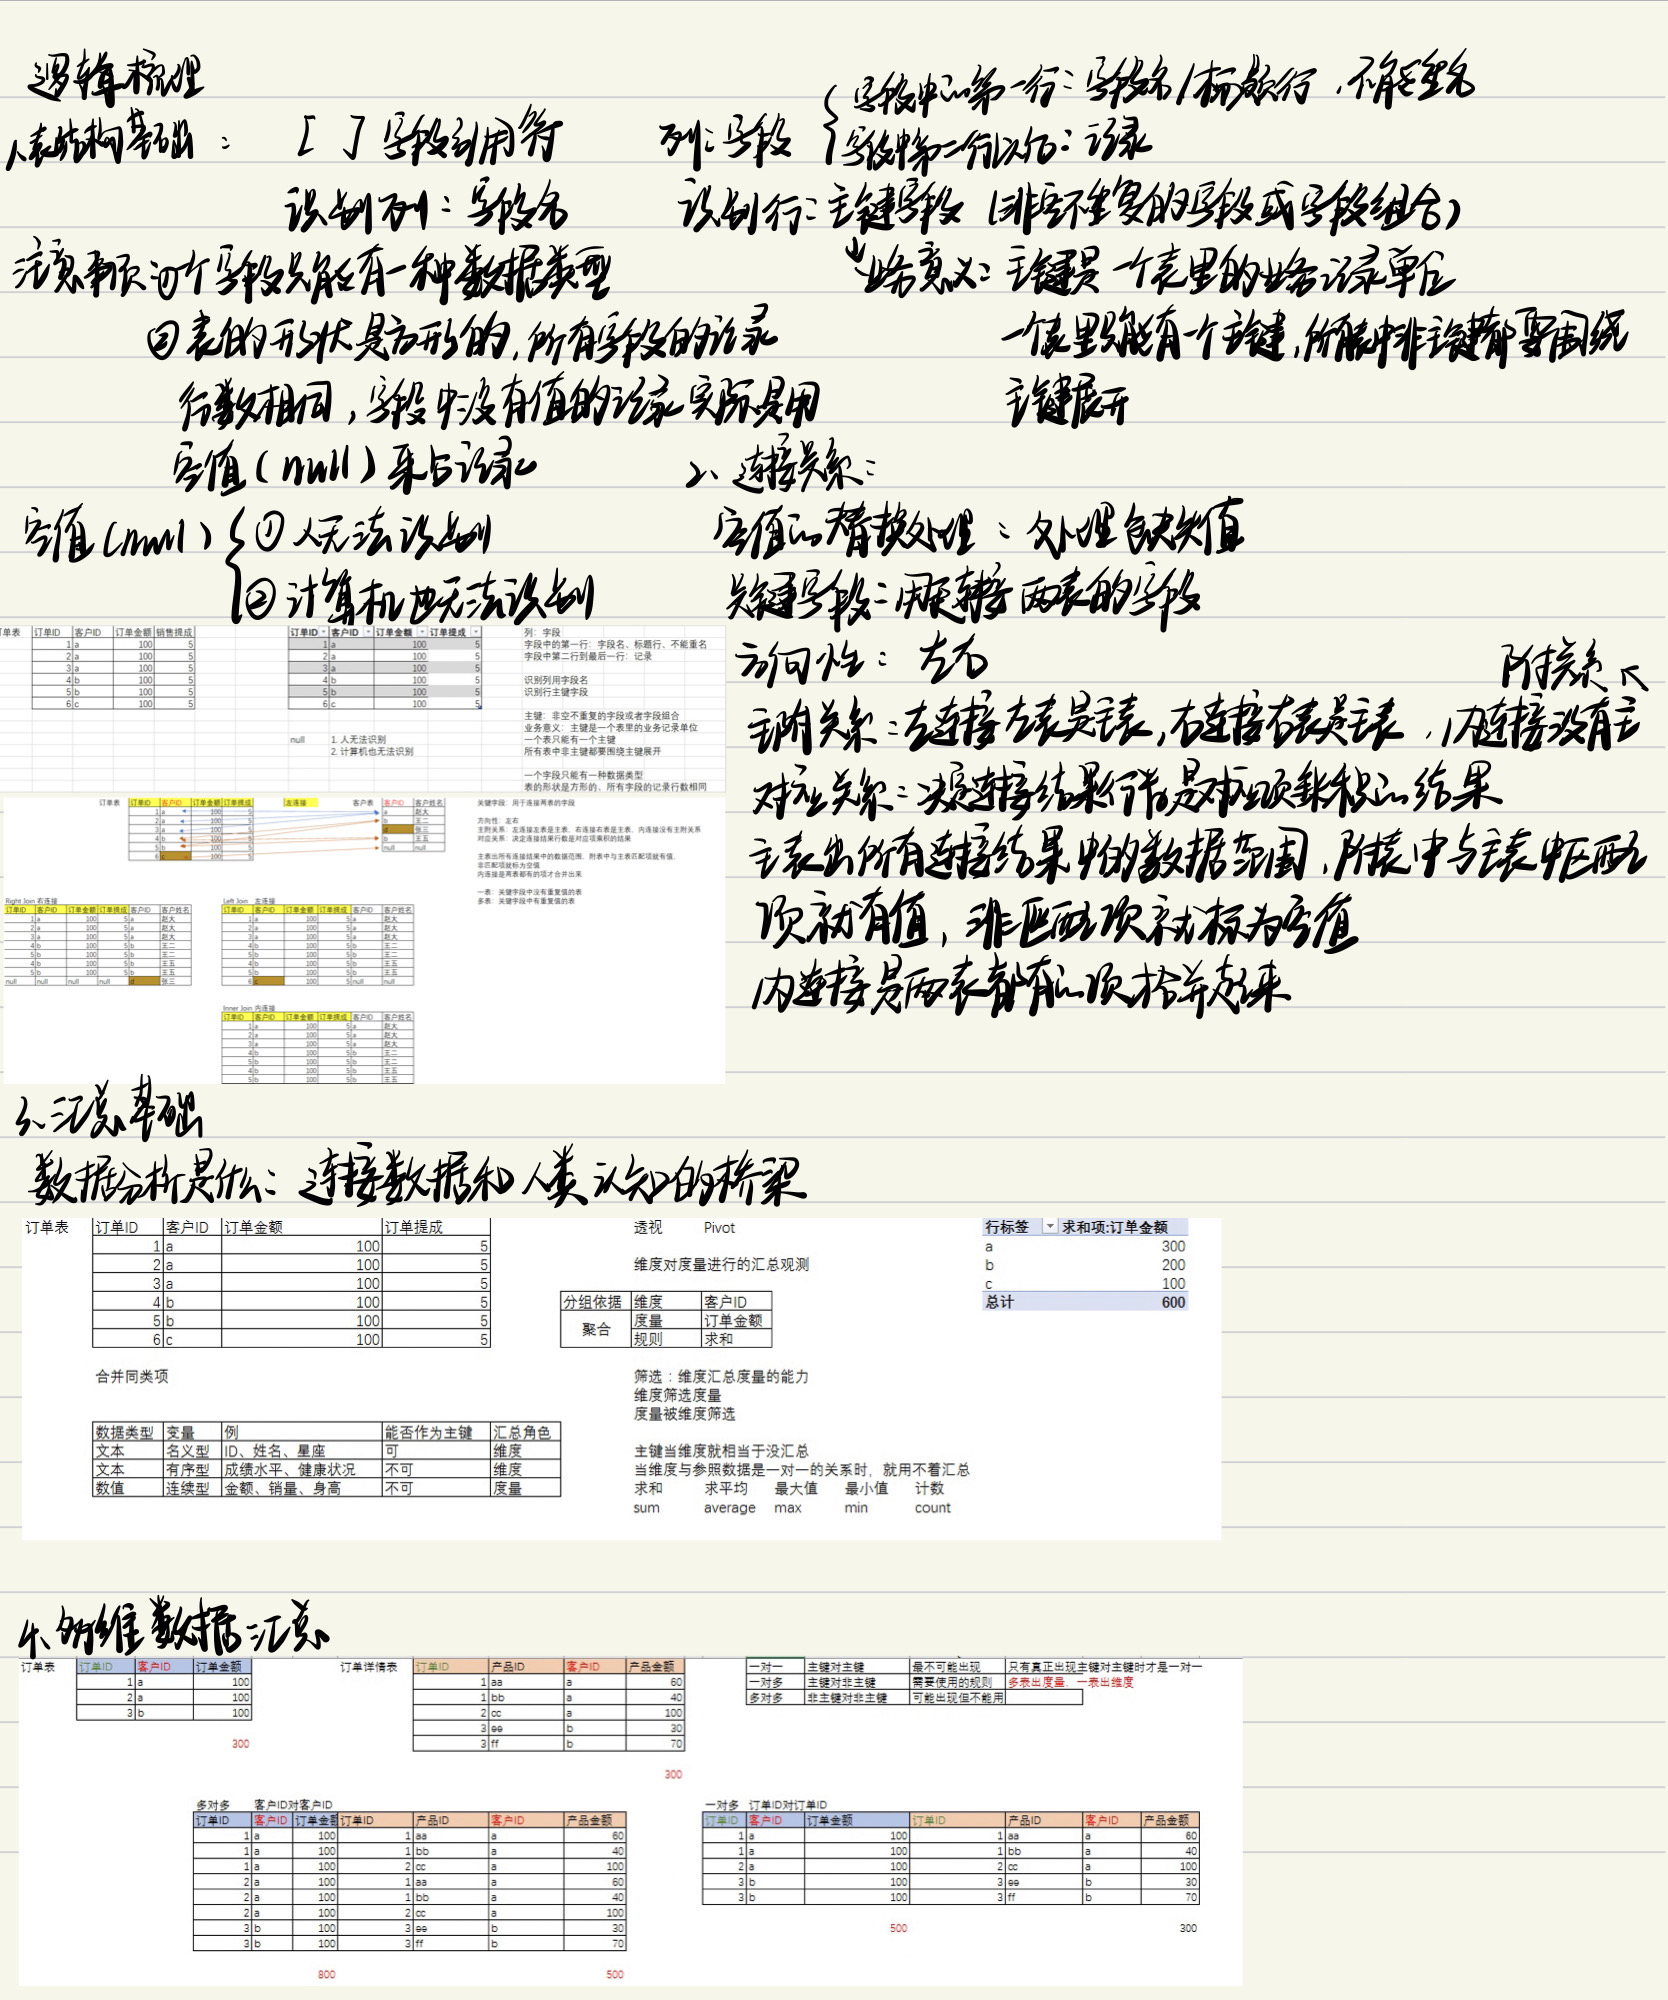 逻辑梳理
1、表结构基础：
[ ] 字段引用符
识别列：字段名
列：字段
字段中的第一行：字段名/标题行，不能重名
字段中第二行以后：记录
识别行：主键字段（非空不重复的字段或字段组合）
业务意义：主键是一个表里的业务记录单位
一个表里只能有一个主键，所有表中非主键都要围绕
主键展开
注意事项 ①个字段只能有一种数据类型
②表的形状是方形的，所有字段的记录
行数相同，字段中没有值的记录实际是用
空值(null)来占记录
空值(null)
①人无法识别
②计算机也无法识别
2、连接关系：
空值的替换处理：处理缺失值
关键字段：用来连接两表的字段
方向性：左右
附关系
主附关系：左连接左表是主表，右连接右表是主表，内连接没有主
对应关系：决定连接结果行数是对应项乘积的结果
主表出所有连接结果中的数据范围，附表中与主表中匹配
项就有值，非匹配项就标为空值
内连接是两表都有的项才合并起来
订单表
订单ID 客户ID 订单金额 销售提成
1 a 100 5
2 a 100 5
3 a 100 5
4 b 100 5
5 b 100 5
6 c 100 5
订单ID 客户ID 订单金额 订单提成
1 a 100 5
2 a 100 5
3 a 100 5
4 b 100 5
5 b 100 5
6 c 100 5
列：字段
字段中的第一行：字段名、标题行、不能重名
字段中第二行到最后一行：记录
识别列用字段名
识别行主键字段
主键：非空不重复的字段或者字段组合
业务意义：主键是一个表里的业务记录单位
一个表只能有一个主键
所有表中非主键都要围绕主键展开
null 1. 人无法识别
2. 计算机也无法识别
一个字段只能有一种数据类型
表的形状是方形的、所有字段的记录行数相同
订单表 订单ID 客户ID 订单金额 订单提成
1 a 100 5
2 a 100 5
3 a 100 5
4 b 100 5
5 b 100 5
6 c 100 5
左连接
客户表 客户ID 客户姓名
a 赵大
b 王二
d 张三
b 王五
null null
关键字段：用于连接两表的字段
方向性：左右
主附关系：左连接左表是主表，右连接右表是主表，内连接没有主附关系
对应关系：决定连接结果行数是对应项乘积的结果
主表出所有连接结果中的数据范围，附表中与主表匹配项就有值，
非匹配项就标为空值
内连接是两表都有的项才合并出来
一表：关键字段中没有重复值的表
多表：关键字段中有重复值的表
Right Join 右连接
订单ID 客户ID 订单金额 订单提成 客户ID 客户姓名
1 a 100 5 a 赵大
2 a 100 5 a 赵大
3 a 100 5 a 赵大
4 b 100 5 b 王二
5 b 100 5 b 王二
4 b 100 5 b 王五
5 b 100 5 b 王五
null null null null d 张三
Left Join 左连接
订单ID 客户ID 订单金额 订单提成 客户ID 客户姓名
1 a 100 5 a 赵大
2 a 100 5 a 赵大
3 a 100 5 a 赵大
4 b 100 5 b 王二
5 b 100 5 b 王二
4 b 100 5 b 王五
5 b 100 5 b 王五
6 c 100 5 null null
Inner Join 内连接
订单ID 客户ID 订单金额 订单提成 客户ID 客户姓名
1 a 100 5 a 赵大
2 a 100 5 a 赵大
3 a 100 5 a 赵大
4 b 100 5 b 王二
5 b 100 5 b 王二
4 b 100 5 b 王五
5 b 100 5 b 王五
3、汇总基础
数据分析是什么：连接数据和人类认知的桥梁
订单表 订单ID 客户ID 订单金额 订单提成
1 a 100 5
2 a 100 5
3 a 100 5
4 b 100 5
5 b 100 5
6 c 100 5
合并同类项
数据类型 变量 例 能否作为主键 汇总角色
文本 名义型 ID、姓名、星座 可 维度
文本 有序型 成绩水平、健康状况 不可 维度
数值 连续型 金额、销量、身高 不可 度量
透视 Pivot
维度对度量进行的汇总观测
分组依据 维度 客户ID
聚合 度量 订单金额
规则 求和
筛选：维度汇总度量的能力
维度筛选度量
度量被维度筛选
主键当维度就相当于没汇总
当维度与参照数据是一对一的关系时，就用不着汇总
求和 求平均 最大值 最小值 计数
sum average max min count
行标签 求和项:订单金额
a 300
b 200
c 100
总计 600
4、多维数据汇总
订单表 订单ID 客户ID 订单金额
1 a 100
2 a 100
3 b 100
300
订单详情表 订单ID 产品ID 客户ID 产品金额
1 aa a 60
1 bb a 40
2 cc a 100
3 ee b 30
3 ff b 70
300
一对一 主键对主键 最不可能出现 只有真正出现主键对主键时才是一对一
一对多 主键对非主键 需要使用的规则 多表出度量．一表出维度
多对多 非主键对非主键 可能出现但不能用
多对多 客户ID对客户ID
订单ID 客户ID 订单金额 订单ID 产品ID 客户ID 产品金额
1 a 100 1 aa a 60
1 a 100 1 bb a 40
1 a 100 2 cc a 100
2 a 100 1 aa a 60
2 a 100 1 bb a 40
2 a 100 2 cc a 100
3 b 100 3 ee b 30
3 b 100 3 ff b 70
800 500
一对多 订单ID对订单ID
订单ID 客户ID 订单金额 订单ID 产品ID 客户ID 产品金额
1 a 100 1 aa a 60
1 a 100 1 bb a 40
2 a 100 2 cc a 100
3 b 100 3 ee b 30
3 b 100 3 ff b 70
500 300